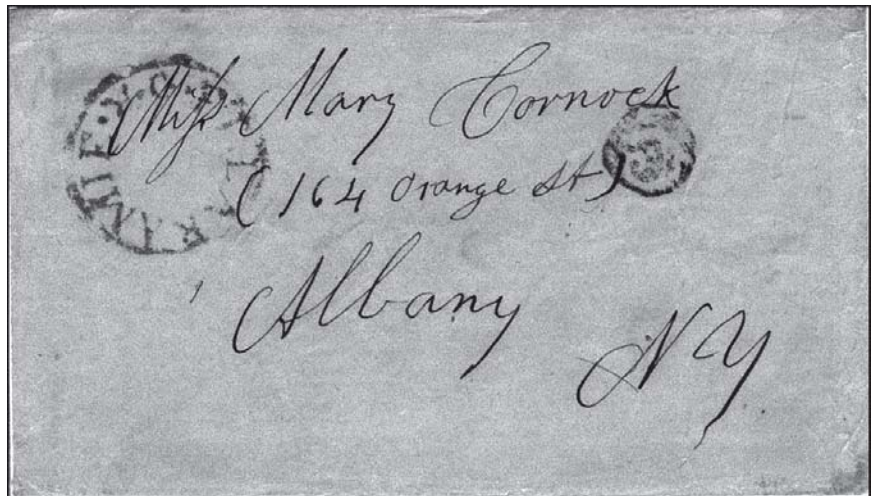 Miss Mary Cornock
(164 Orange St)
Albany
N Y